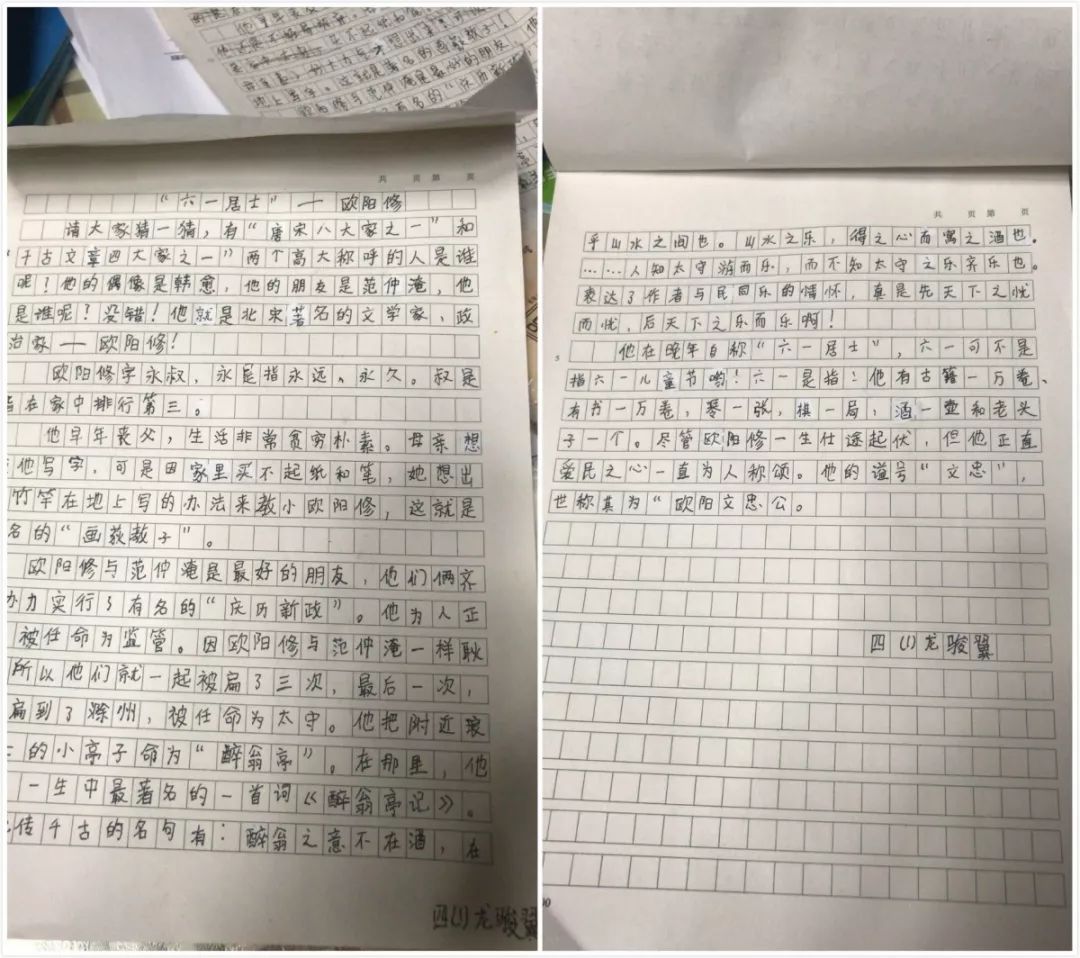 共 页 第 页
“六一居士”——欧阳修
请大家猜一猜，有“唐宋八大家之一”和
“千古文章四大家之一”两个高大称呼的人是谁
呢！他的偶像是韩愈，他的朋友是范仲淹，他
是谁呢？没错！他就是北宋著名的文学家、政
治家——欧阳修！
欧阳修字永叔，永是指永远、永久。叔是
在家中排行第三。
他早年丧父，生活非常贫穷朴素。母亲想
他写字，可是因家里买不起纸和笔，她想出
竹竿在地上写的办法来教小欧阳修，这就是
名的“画荻教子”。
欧阳修与范仲淹是最好的朋友，他们俩齐
力实行了有名的“庆历新政”。他为人正
被任命为监管。因欧阳修与范仲淹一样耿
所以他们就一起被扁了三次，最后一次，
扁到了滁州，被任命为太守。他把附近
的小亭子命为“醉翁亭”。在那里，他
一生中最著名的一首词《醉翁亭记》。
传千古的名句有：醉翁之意不在酒，在
四（1）龙骏翼
共 页 第 页
乎山水之间也。山水之乐，得之心而寓之酒也。
……人知太守游而乐，而不知太守之乐齐乐也。
表达了作者与民同乐的情怀，真是先天下之忧
而忧，后天下之乐而乐啊！
他在晚年自称“六一居士”，六一可不是
指六一儿童节哟！六一是指：他有古籍一万卷、
有书一万卷，琴一张，棋一局，酒一壶和老头
子一个。尽管欧阳修一生仕途起伏，但他正直
爱民之心一直为人称颂。他的谥号“文忠”，
世称其为“欧阳文忠公。
四（1）龙骏翼